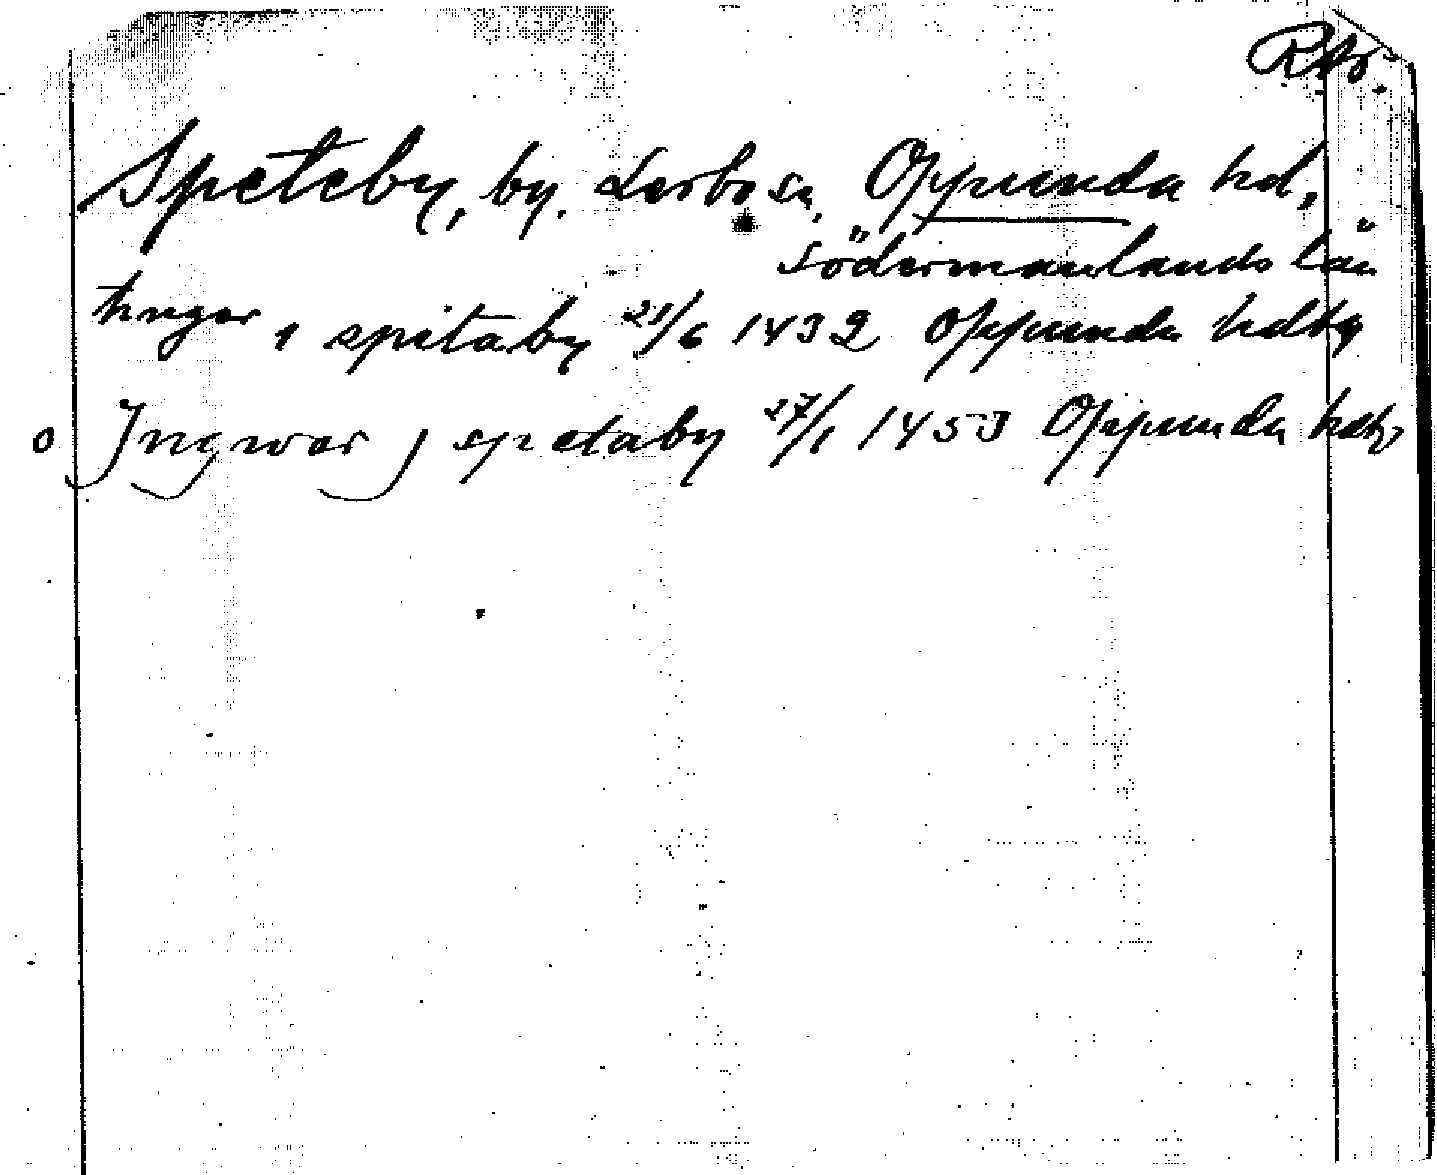 Speteby, by. Lerbo sn, Oppunda hd,
Södermanlands län
i spitaby 21/6 1432 Oppunda hdtg
o Ingwar j spetaby 27/1 1453 Oppunda hdtg